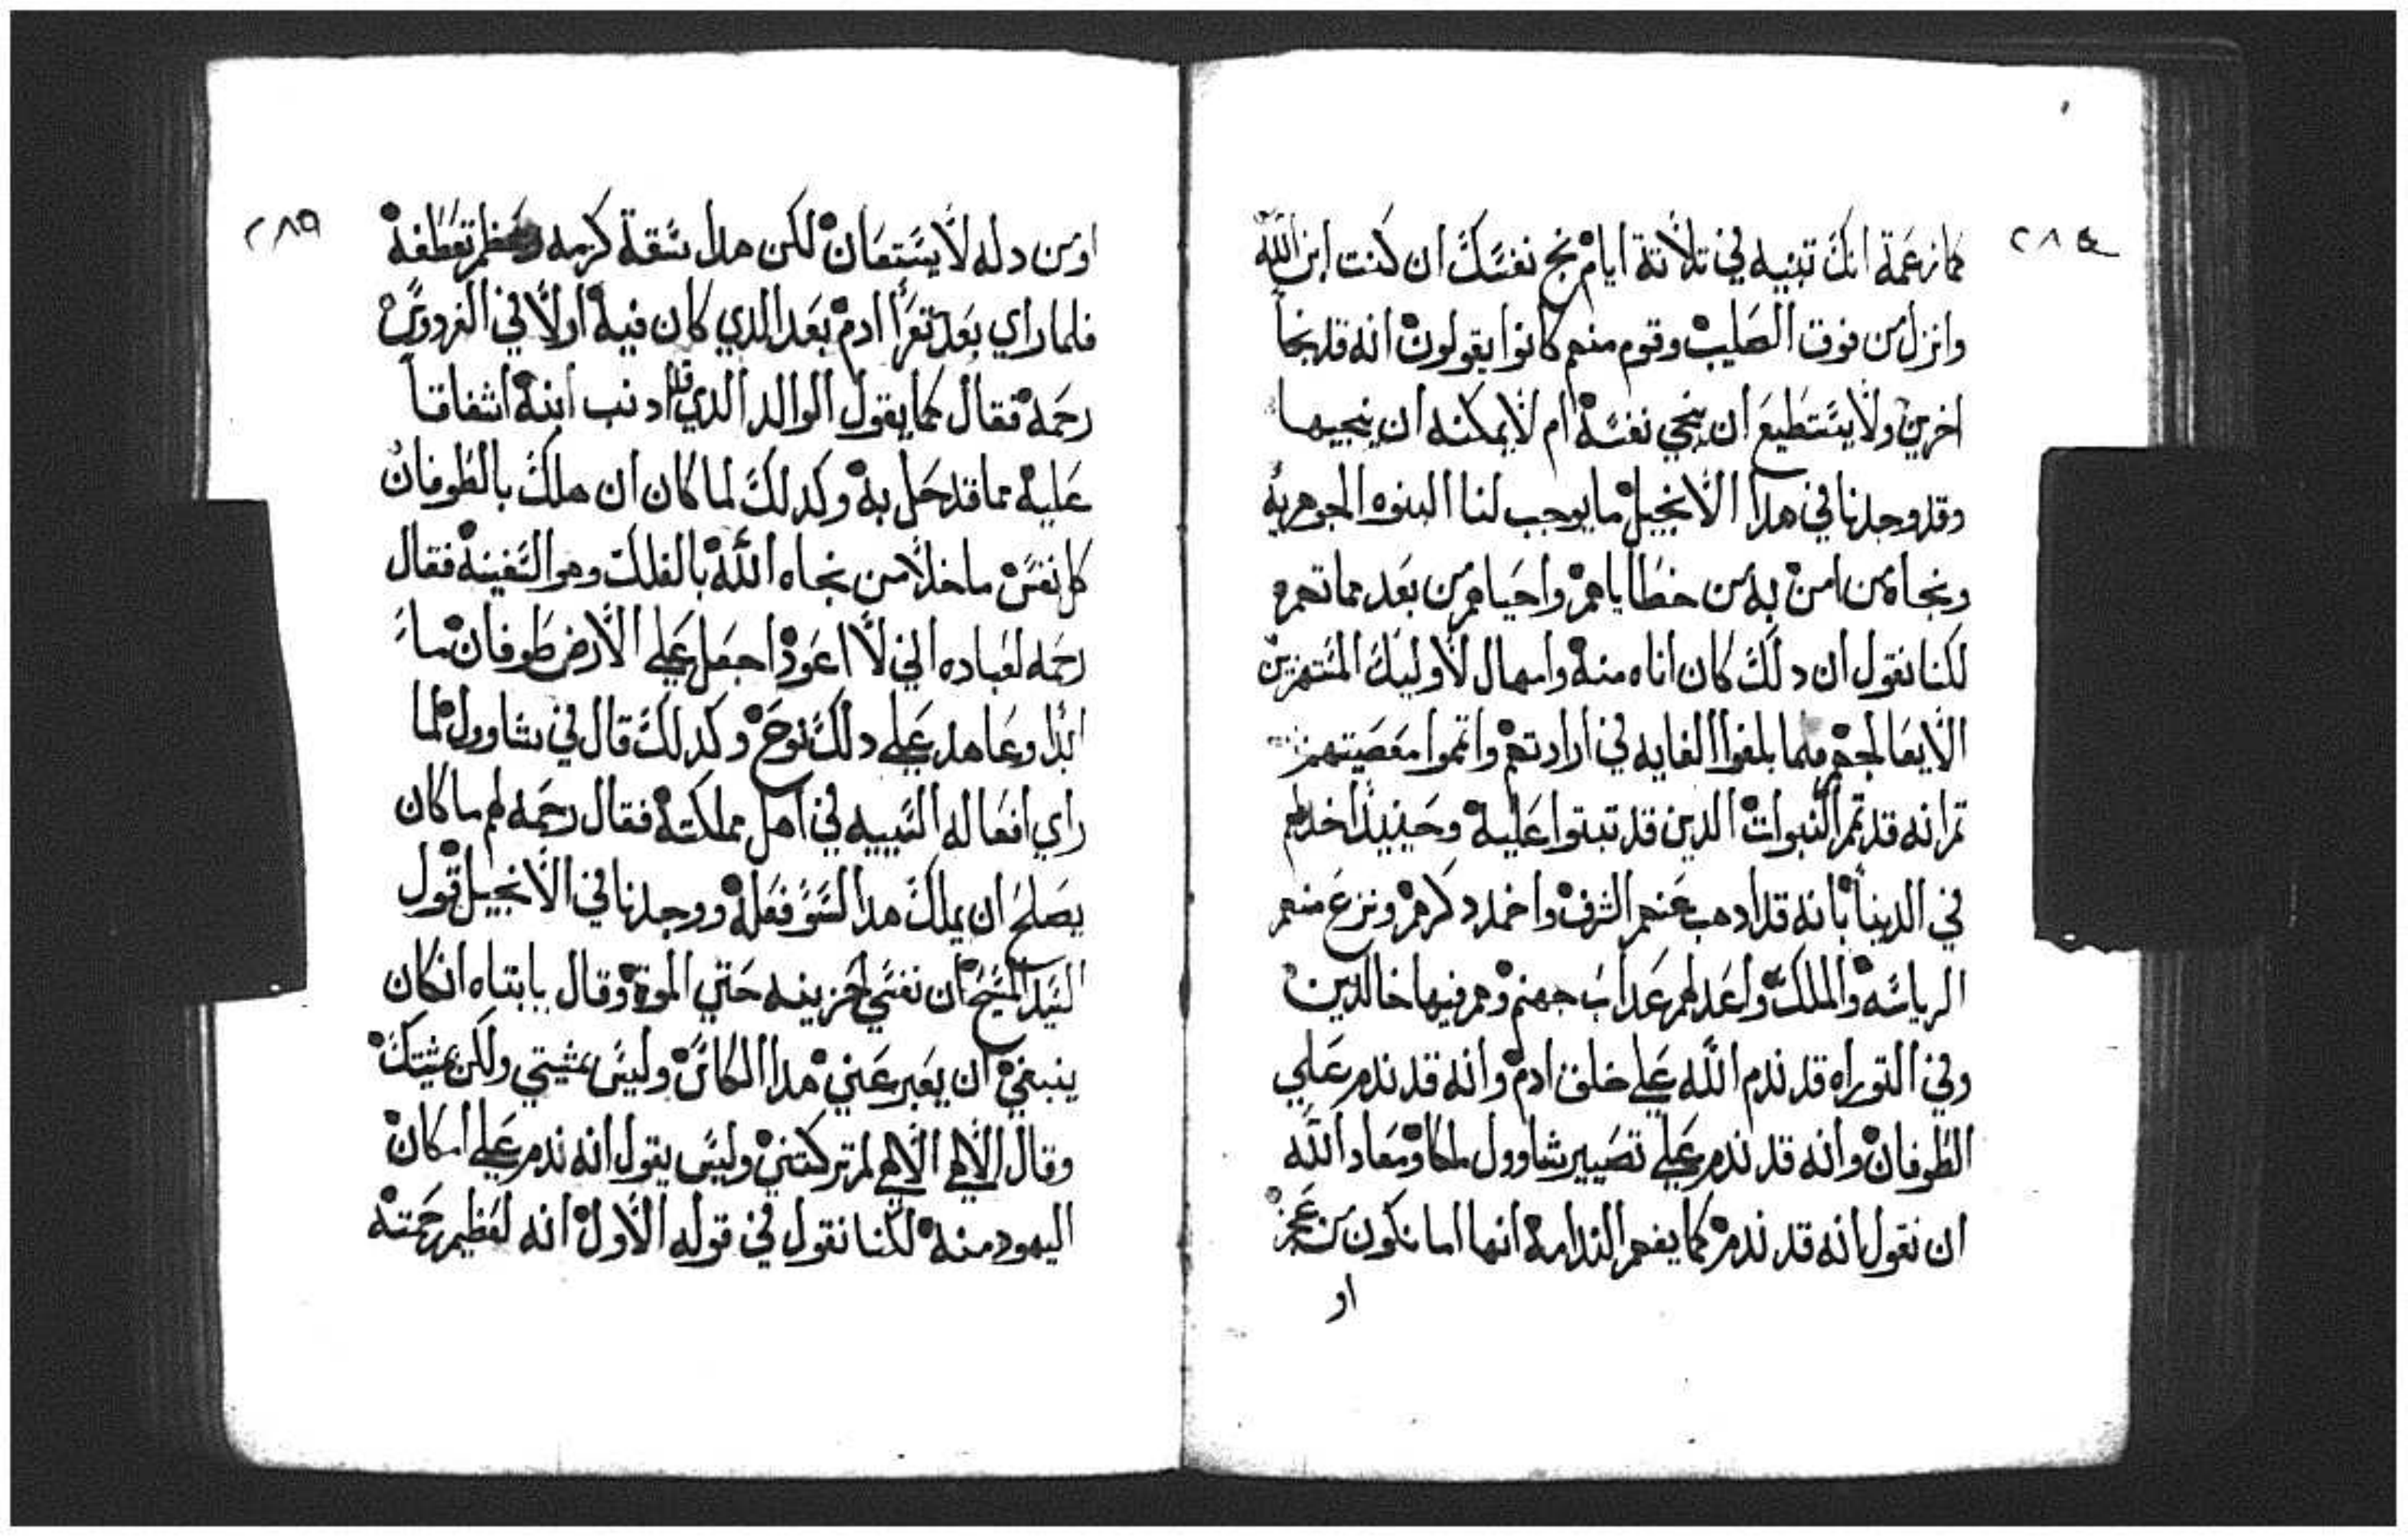 ٢٨٤
كما زعمة انك تبنيه في تلاتة ايام نج نفسك ان كنت ابن الله
وانزل من فوق الصليب وقوم منهم كانوا يقولون انه قد نجا
اخرين ولا يستطيع ان ينجي نفسه ام لا يمكنه ان ينجيها
وقد وجدنا في هدا الانجيل ما يوجب لنا البنوه الجوهريه
ونجاة من امن به من خطاياهم واحياهم من بعد مماتهم
لكنا نقول ان دلك كان اناه منه وامهال لاوليك المستهزين
الا يعالجهم فلما بلغوا الغايه في ارادتهم واتموا معصيتهم
تم انه قد تمم النبوات الدين قد تبتوا عليه وحينيدا اخدلهم
في الدينا بانه قد ادهب عنهم الشرف واخمد دكرهم ونزع منهم
الرياسه والملك واعد لهم عداب جهنم وهم فيها خالدين
وفي التوراه قد ندم الله علي خلق ادم وانه قد ندم علي
الطوفان وانه قد ندم علي تصيير شاوول ملكا ومعاد الله
ان نقول انه قد ندم كما يفهم الندامه انها اما نكون من عجز
او
٢٨٥
اومن دله لا يستعان لكن هدا شقة كرمه تعطفه
فلما راي بعد تعرا ادم بعد الدي كان فيه اولا في الفردوس
رحمه فقال كما يقول الوالد الدي قد ادنب ابنه اشفاقا
عليه مما قد حل به وكدلك لما كان ان هلك بالطوفان
كل نفس ما خلا من نجاه الله بالفلك وهو السفينه فقال
رحمه لعباده اني لا اعود اجعل علي الارض طوفان ماء
ابدا وعاهد علي دلك نوح وكدلك قال في شاوول لما
راي افعاله السييه في اهل مملكته فقال رحمه لهم ما كان
يصلح ان يملك هدا لسو فعله ووجدنا في الانجيل قول
السيد المسيح ان نفسي لحزينه حتي الموة وقال يا ابتاه ان كان
ينبغي ان يعبر عني هدا الكاس وليس بمشيتي ولكن بمشيتك
وقال الالهي الالهي لم تركتني وليس يقول انه ندم علي امكان
اليهود منه لكنا نقول في قوله الاول انه لعظيم رحمته